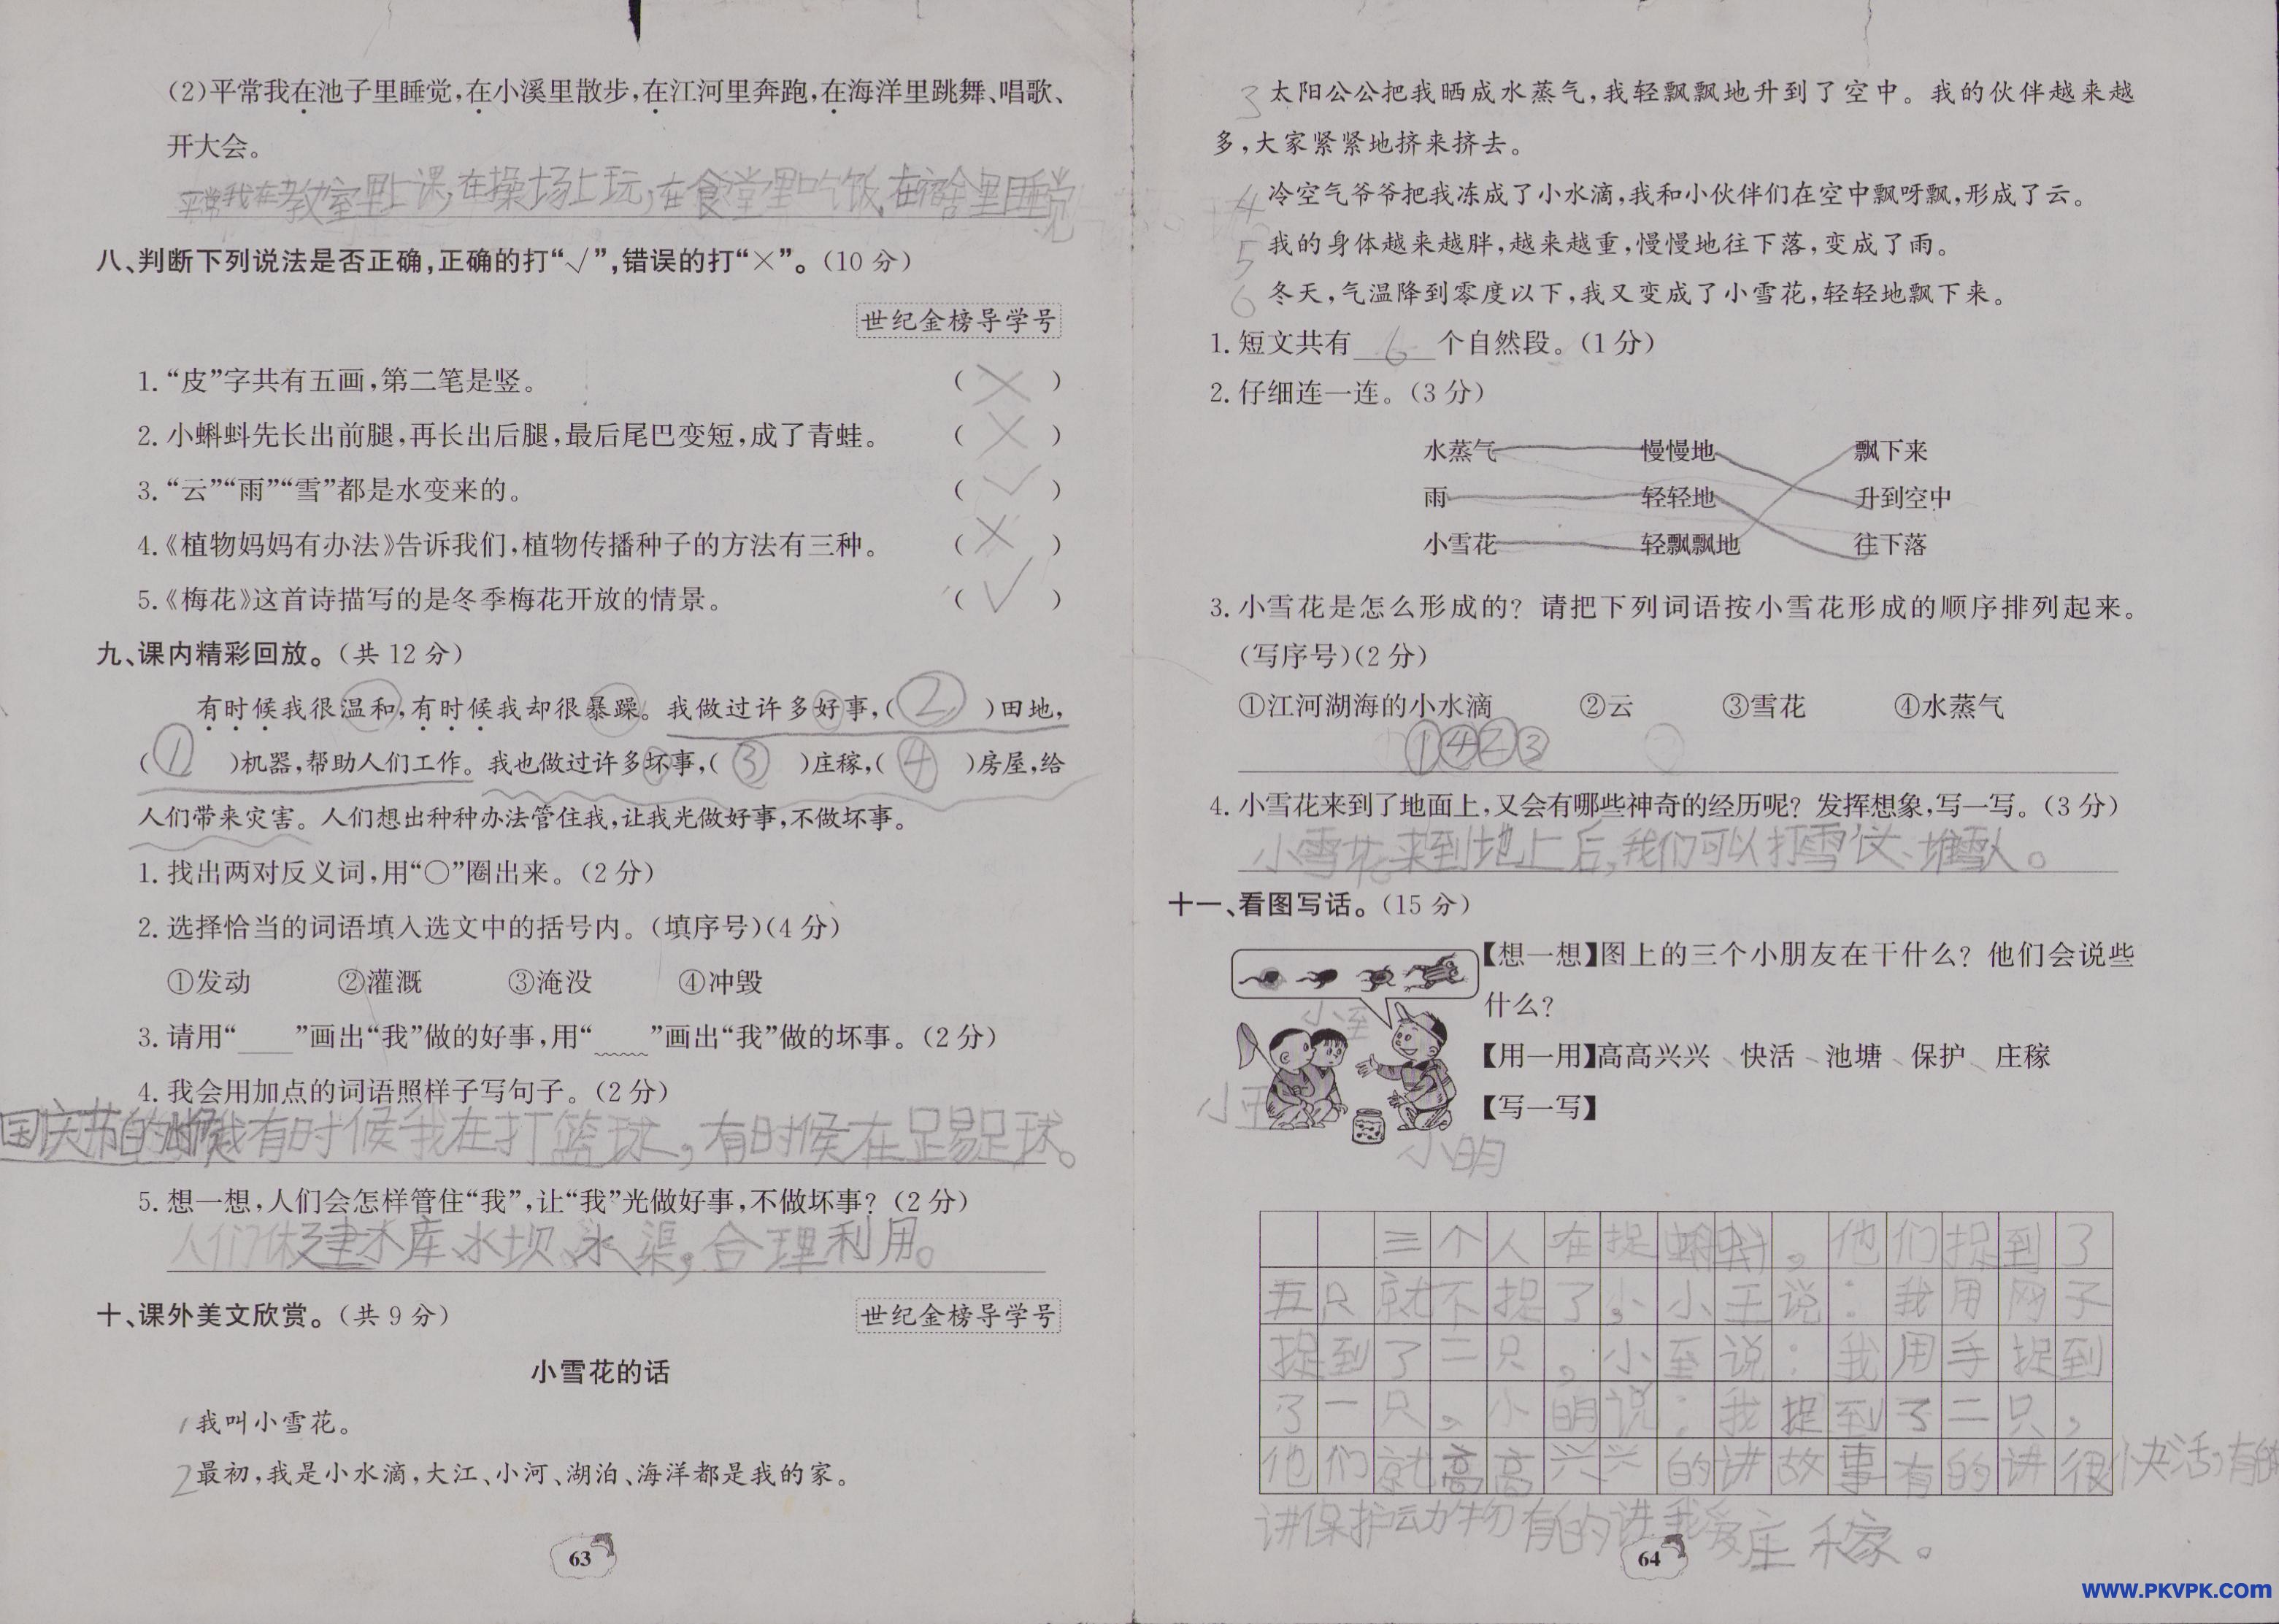 (2)平常我在池子里睡觉,在小溪里散步,在江河里奔跑,在海洋里跳舞、唱歌、
开大会。
平常我在教室里上课,在操场上玩,在食堂里吃饭,在宿舍里睡觉
八、判断下列说法是否正确,正确的打“√”,错误的打“×”。(10 分)
世纪金榜导学号
1. “皮”字共有五画,第二笔是竖。 ( × )
2. 小蝌蚪先长出前腿,再长出后腿,最后尾巴变短,成了青蛙。 ( × )
3. “云”“雨”“雪”都是水变来的。 ( √ )
4.《植物妈妈有办法》告诉我们,植物传播种子的方法有三种。 ( × )
5.《梅花》这首诗描写的是冬季梅花开放的情景。 ( √ )
九、课内精彩回放。(共 12 分)
有时候我很温和,有时候我却很暴躁。我做过许多好事,( ② )田地,
( ① )机器,帮助人们工作。我也做过许多坏事,( ③ )庄稼,( ④ )房屋,给
人们带来灾害。人们想出种种办法管住我,让我光做好事,不做坏事。
1. 找出两对反义词,用“○”圈出来。(2 分)
2. 选择恰当的词语填入选文中的括号内。(填序号)(4 分)
①发动 ②灌溉 ③淹没 ④冲毁
3. 请用“____”画出“我”做的好事,用“﹏﹏”画出“我”做的坏事。(2 分)
4. 我会用加点的词语照样子写句子。(2 分)
国庆节的时候我有时候我在打篮球,有时候在足易足球。
5. 想一想,人们会怎样管住“我”,让“我”光做好事,不做坏事?(2 分)
人们会建水库、水坝、水渠,合理利用。
十、课外美文欣赏。(共 9 分)
世纪金榜导学号
小雪花的话
1 我叫小雪花。
2 最初,我是小水滴,大江、小河、湖泊、海洋都是我的家。
63
3 太阳公公把我晒成水蒸气,我轻飘飘地升到了空中。我的伙伴越来越
多,大家紧紧地挤来挤去。
4 冷空气爷爷把我冻成了小水滴,我和小伙伴们在空中飘呀飘,形成了云。
5 我的身体越来越胖,越来越重,慢慢地往下落,变成了雨。
6 冬天,气温降到零度以下,我又变成了小雪花,轻轻地飘下来。
1. 短文共有 6 个自然段。(1 分)
2. 仔细连一连。(3 分)
水蒸气 慢慢地 飘下来
雨 轻轻地 升到空中
小雪花 轻飘飘地 往下落
3. 小雪花是怎么形成的? 请把下列词语按小雪花形成的顺序排列起来。
(写序号)(2 分)
①江河湖海的小水滴 ②云 ③雪花 ④水蒸气
①④②③
4. 小雪花来到了地面上,又会有哪些神奇的经历呢? 发挥想象,写一写。(3 分)
小雪花来到地上后,我们可以打雪仗、堆雪人。
十一、看图写话。(15 分)
【想一想】图上的三个小朋友在干什么? 他们会说些
什么?
小至
【用一用】高高兴兴、快活、池塘、保护、庄稼
小王
【写一写】
小明
三个人在捉蝌蚪。他们捉到了
五只就不捉了,小小王说:我用网子
捉到了二只,小至说:我用手捉到
了一只。小明说:我捉到了二只,
他们就高高兴兴的讲故事有的讲很快活,有的
讲保护动物有的讲我爱庄稼。
64
www.PKVPK.com